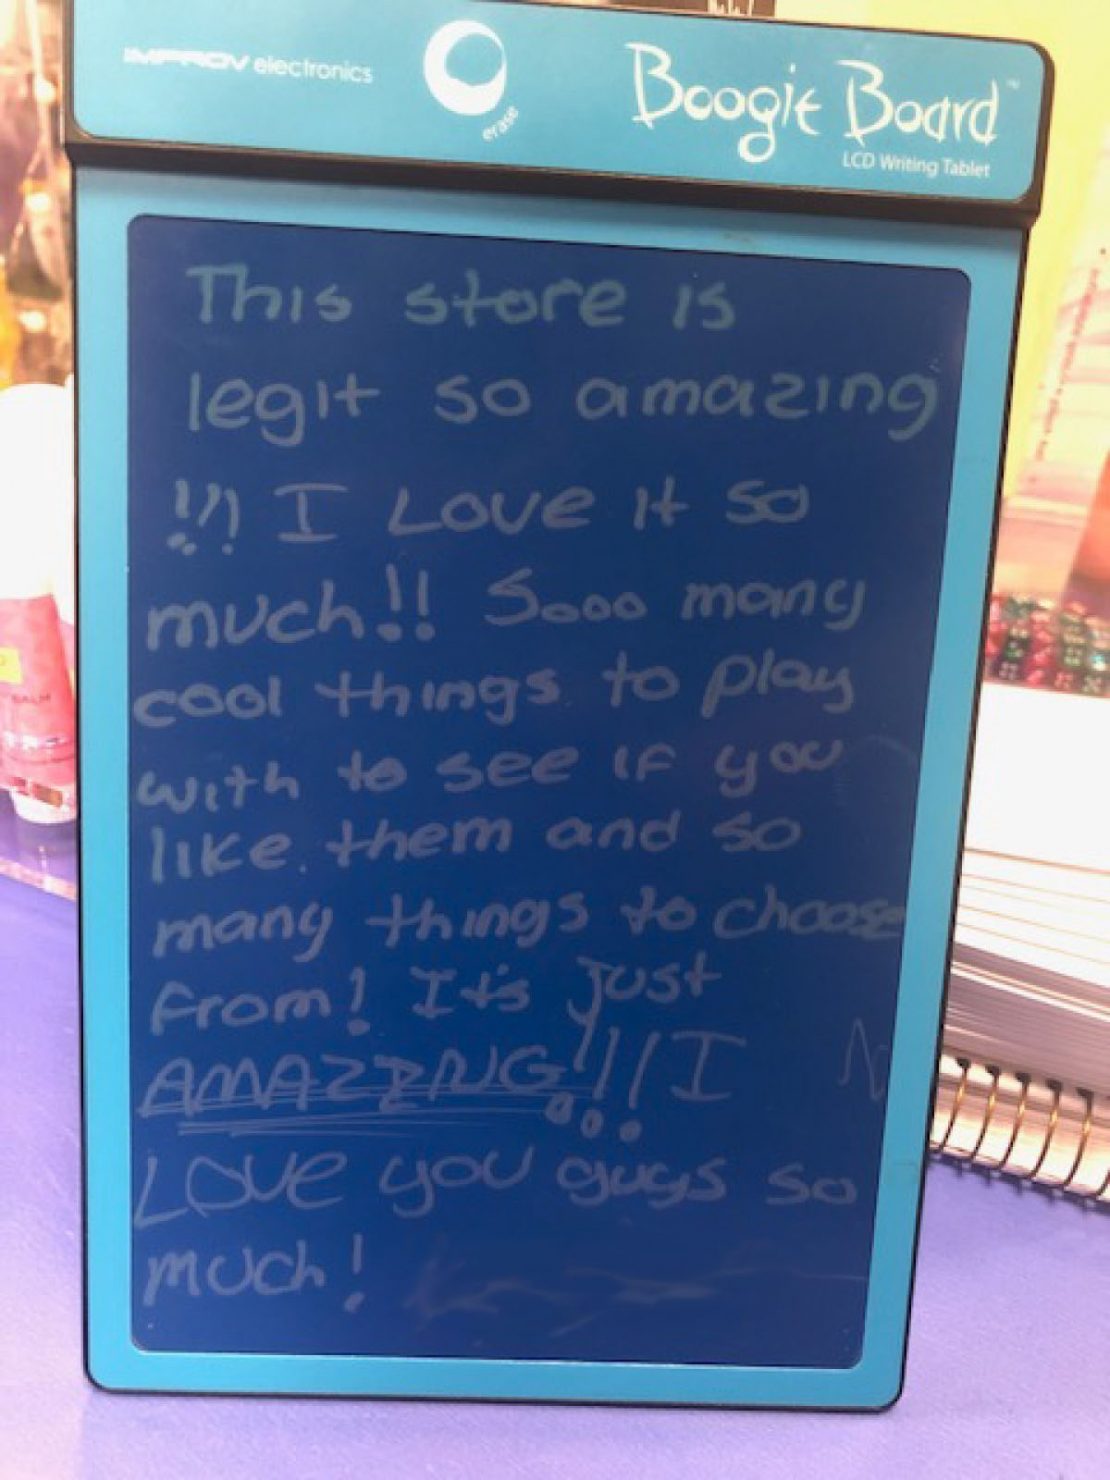 IMPROV electronics
erase
Boogie Board™
LCD Writing Tablet
This store is
legit so amazing
!!! I Love it so
much!! Sooo many
cool things to play
with to see if you
like them and so
many things to choose
from! It's just
AMAZING!!! I
LOVE you guys so
much!
BALM